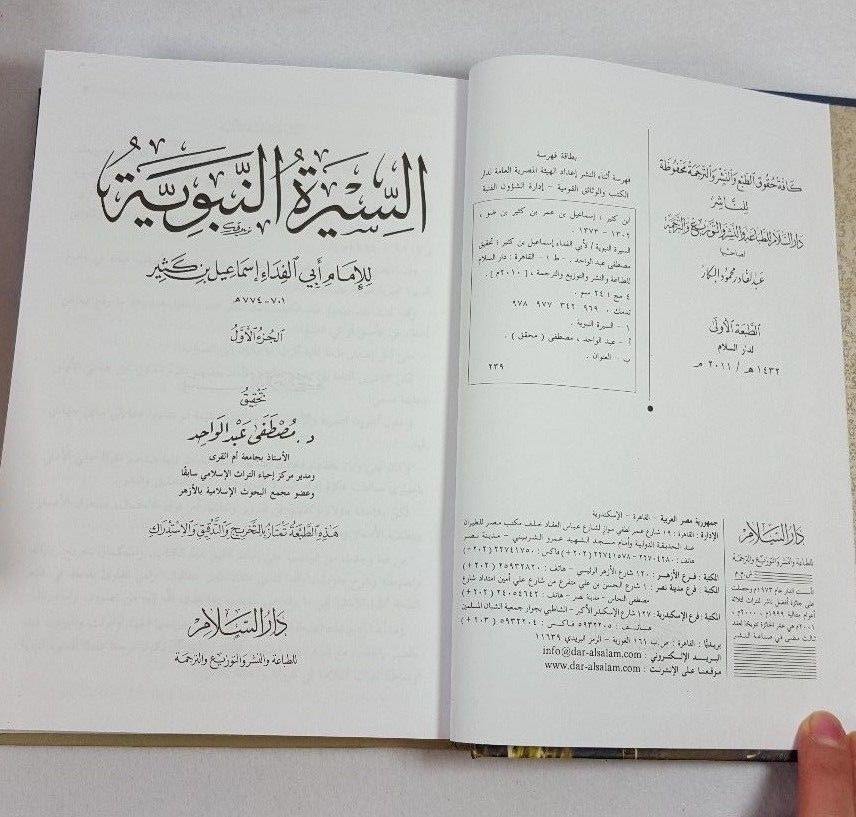 كافة حقوق الطبع والنشر والترجمة محفوظة
للناشر
دار السلام للطباعة والنشر والتوزيع والترجمة
لصاحبها
عبدالقادر محمود البكار
الطبعة الأولى
لدار السلام
١٤٣٢ هـ / ٢٠١١ مـ
بطاقة فهرسة
فهرسة أثناء النشر إعداد الهيئة المصرية العامة لدار
الكتب والوثائق القومية - إدارة الشؤون الفنية
ابن كثير ، إسماعيل بن عمر بن كثير بن ضو ،
١٣٠٢ - ١٣٧٣
السيرة النبوية / لأبي الفداء إسماعيل بن كثير ؛ تحقيق
مصطفى عبد الواحد . - ط ١ - القاهرة : دار السلام
للطباعة والنشر والتوزيع والترجمة ، [ ٢٠١٠م ] .
٤ مج ؛ ٢٤ سم .
تدمك ٠ ٩٦٩ ٣٤٢ ٩٧٧ ٩٧٨
١ - السيرة النبوية .
أ - عبد الواحد ، مصطفى ( محقق ) .
ب - العنوان .
٢٣٩
دار السلام
للطباعة والنشر والتوزيع والترجمة
ش.م.م
تأسست الدار عام ١٩٧٣م وحصلت
على جائزة أفضل ناشر للتراث لثلاثة
أعوام متتالية ١٩٩٩م ، ٢٠٠٠م ،
٢٠٠١م هي عشر الجائزة تتويجا لعقد
ثالث مضى في صناعة النشر
جمهورية مصر العربية - القاهرة - الإسكندرية
الإدارة : القاهرة : ١٩ شارع عمر لطفي مواز لشارع عباس العقاد خلف مكتب مصر للطيران
عند الحديقة الدولية وأمام مسجد الشهيد عمرو الشربيني - مدينة نصر
هاتف : ٢٢٧٠٤٢٨٠ - ٢٢٧٤١٥٧٨ ( ٢٠٢ + ) فاكس : ٢٢٧٤١٧٥٠ ( ٢٠٢ + )
المكتبة : فرع الأزهر : ١٢٠ شارع الأزهر الرئيسي - هاتف : ٢٥٩٣٢٨٢٠ ( ٢٠٢ + )
المكتبة : فرع مدينة نصر : ١ شارع الحسن بن علي متفرع من شارع علي أمين امتداد شارع
مصطفى النحاس - مدينة نصر - هاتف : ٢٤٠٥٤٦٤٢ ( ٢٠٢ + )
المكتبة : فرع الإسكندرية : ١٢٧ شارع الإسكندر الأكبر - الشاطبي بجوار جمعية الشبان المسلمين
هاتف : ٥٩٣٢٢٠٥ فاكس : ٥٩٣٢٢٠٤ ( ٢٠٣ + )
بريديًّا : القاهرة : ص.ب ١٦١ الغورية - الرمز البريدي ١١٦٣٩
البريد الإلكتروني : info@dar-alsalam.com
موقعنا على الإنترنت : www.dar-alsalam.com
السيرة النبوية
للإمام أبي الفداء إسماعيل بن كثير
٧٠١-٧٧٤ هـ
الجزء الأول
تحقيق
د. مصطفى عبد الواحد
الأستاذ بجامعة أم القرى
ومدير مركز إحياء التراث الإسلامي سابقًا
وعضو مجمع البحوث الإسلامية بالأزهر
هذه الطبعة تمتاز بالتخريج والتدقيق والاستدراك
دار السلام
للطباعة والنشر والتوزيع والترجمة